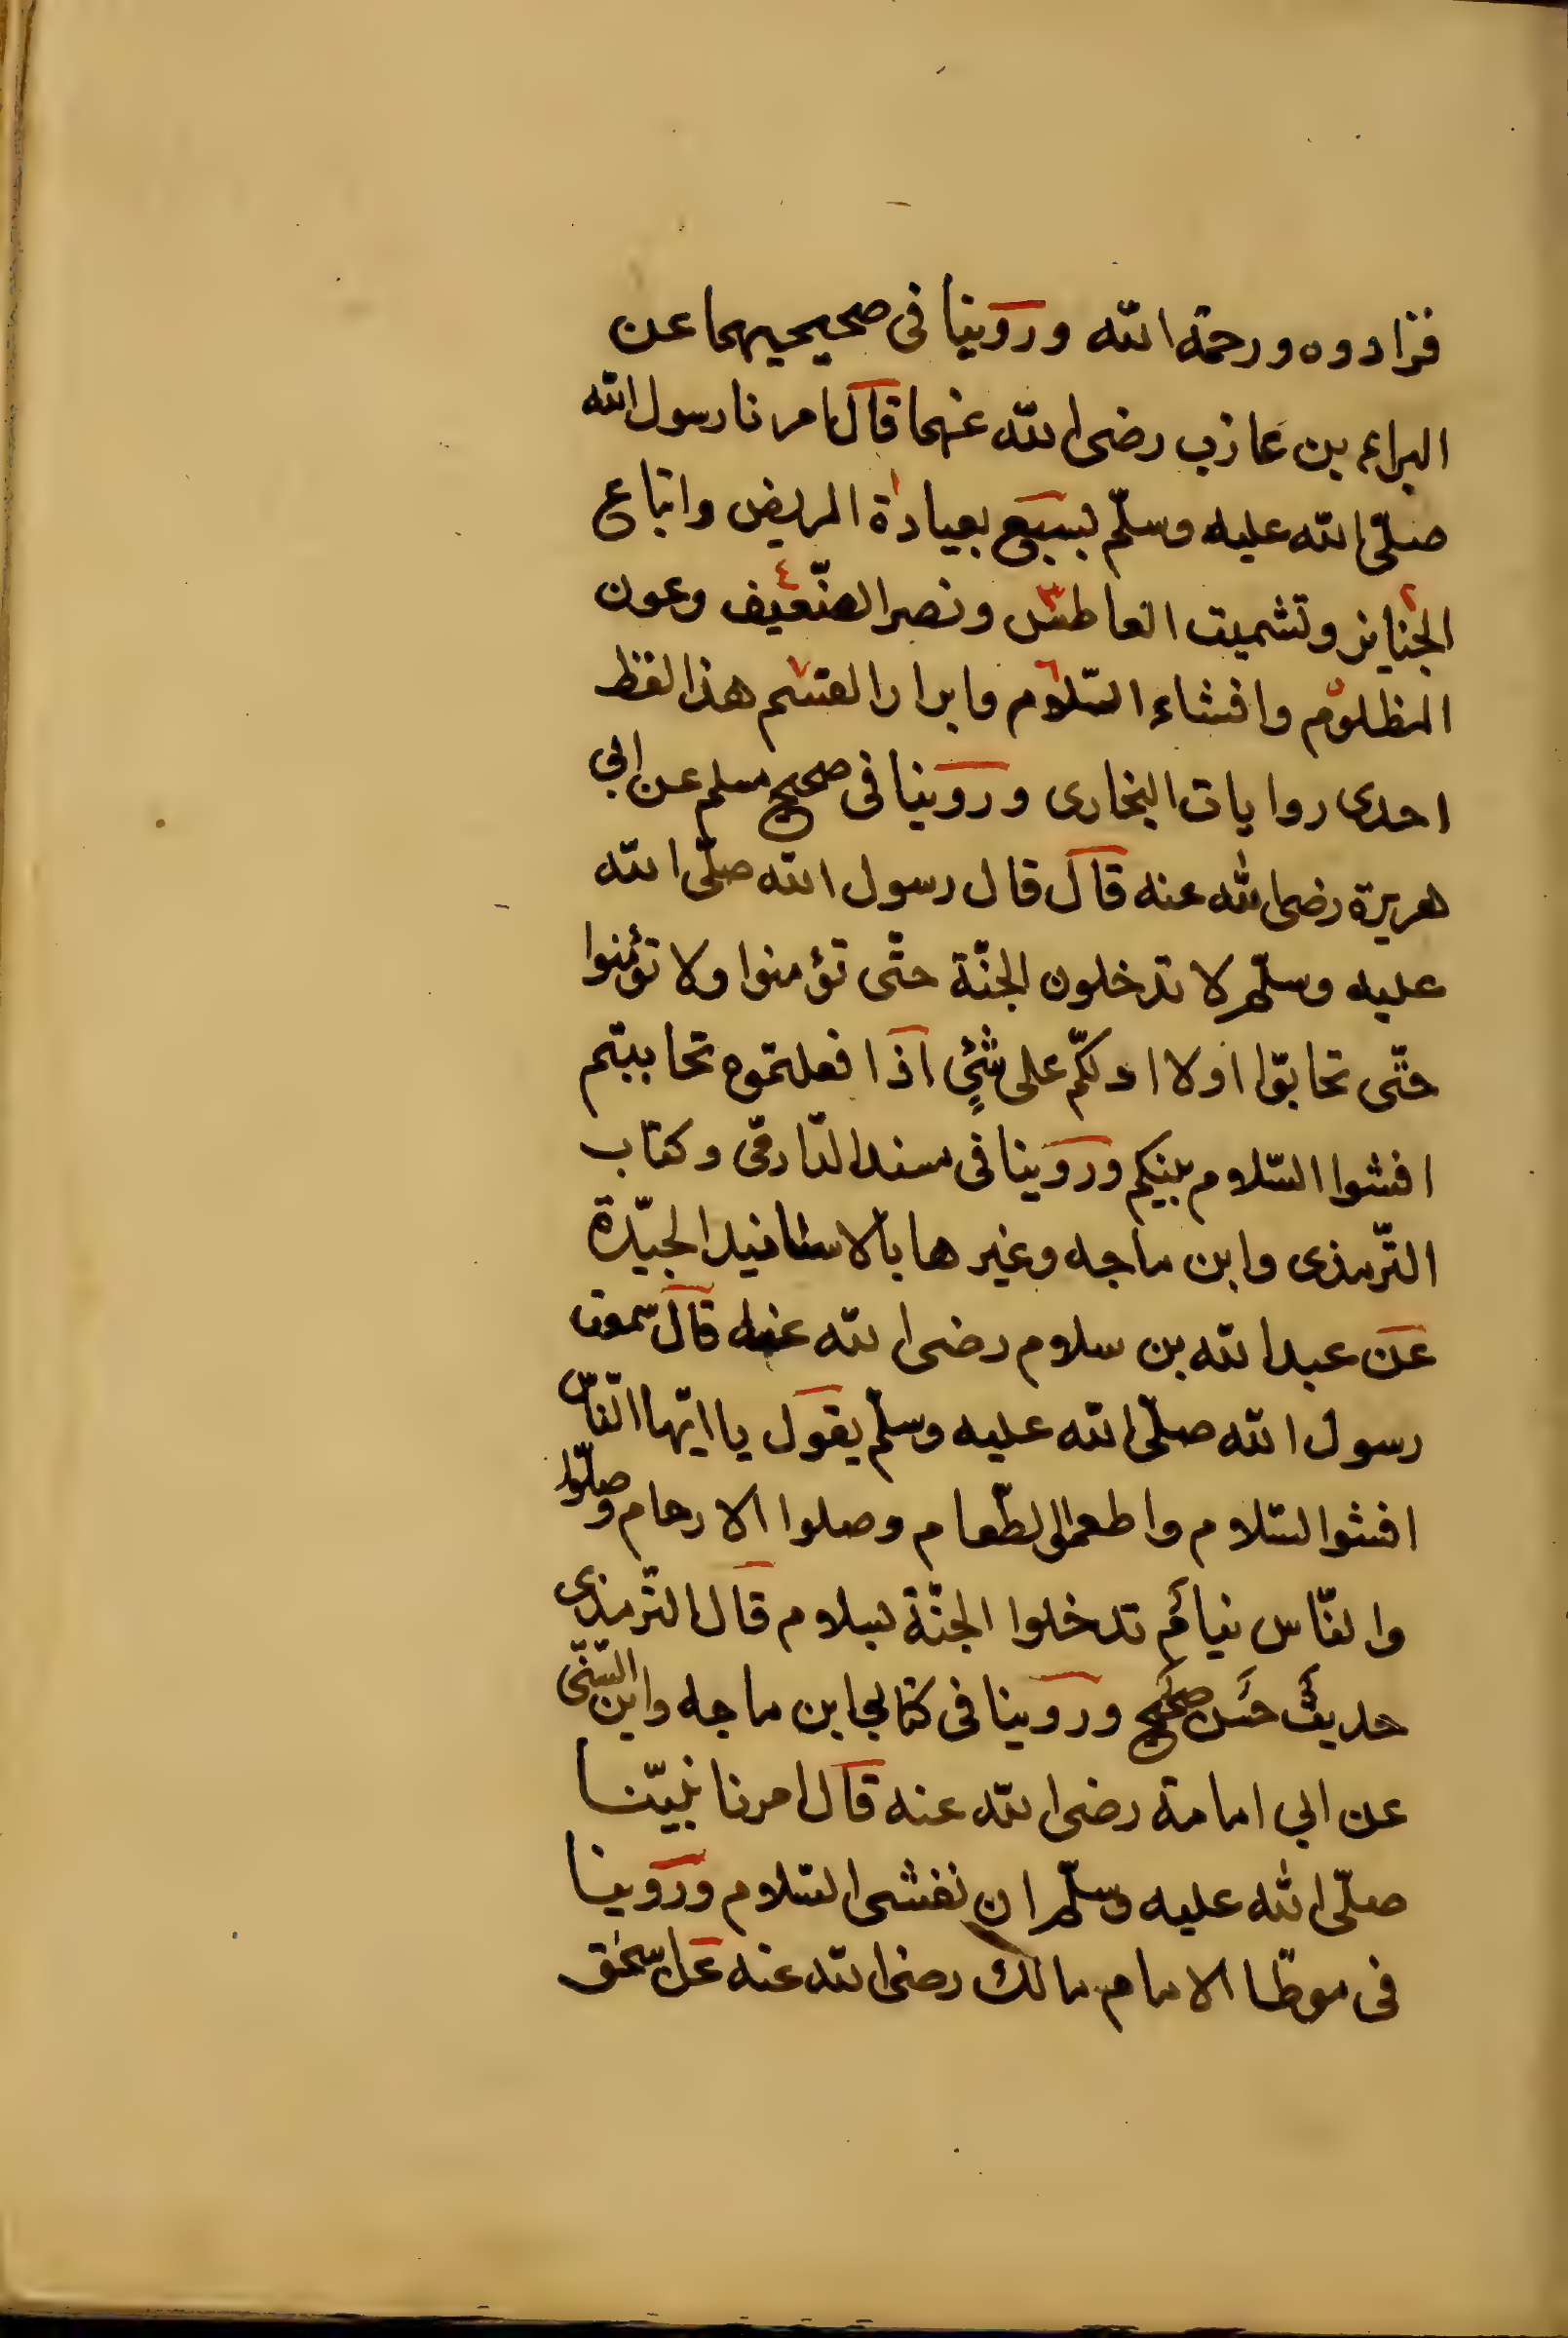 فزادوه ورحمة الله وروينا فى صحيحيهما عن
البراء بن عازب رضى الله عنهما قال امرنا رسول الله
صلّى الله عليه وسلّم بسبع بعيادة المريض واتباع
الجنايز وتشميت العاطس ونصر الضّعيف وعون
المظلوم وافشاء السّلام وابرار القسم هذا لفظ
احدى روايات البخارى وروينا فى صحيح مسلم عن ابي
هريرة رضى الله عنه قال قال رسول الله صلّى الله
عليه وسلّم لا تدخلون الجنّة حتّى تؤمنوا ولا تؤمنوا
حتّى تحابّوا اولا ادلكّم على شئٍ اذا فعلتموه تحاببتم
افشوا السّلام بينكم وروينا فى مسند الدّارمى وكتاب
التّرمذى وابن ماجه وغيرها بالاسانيد الجيّدة
عن عبد الله بن سلام رضى الله عنه قال سمعت
رسول الله صلّى الله عليه وسلّم يقول يا ايّها النّاس
افشوا السّلام واطعموا الطّعام وصلوا الارحام وصلّوا
والنّاس نيام تدخلوا الجنّة بسلام قال التّرمذى
حديث حسن صحيح وروينا فى كتابي ابن ماجه وابن السّنّى
عن ابي امامة رضى الله عنه قال امرنا نبيّنا
صلّى الله عليه وسلّم ان نفشى السّلام وروينا
فى موطّا الامام مالك رضى الله عنه عن اسحٰق